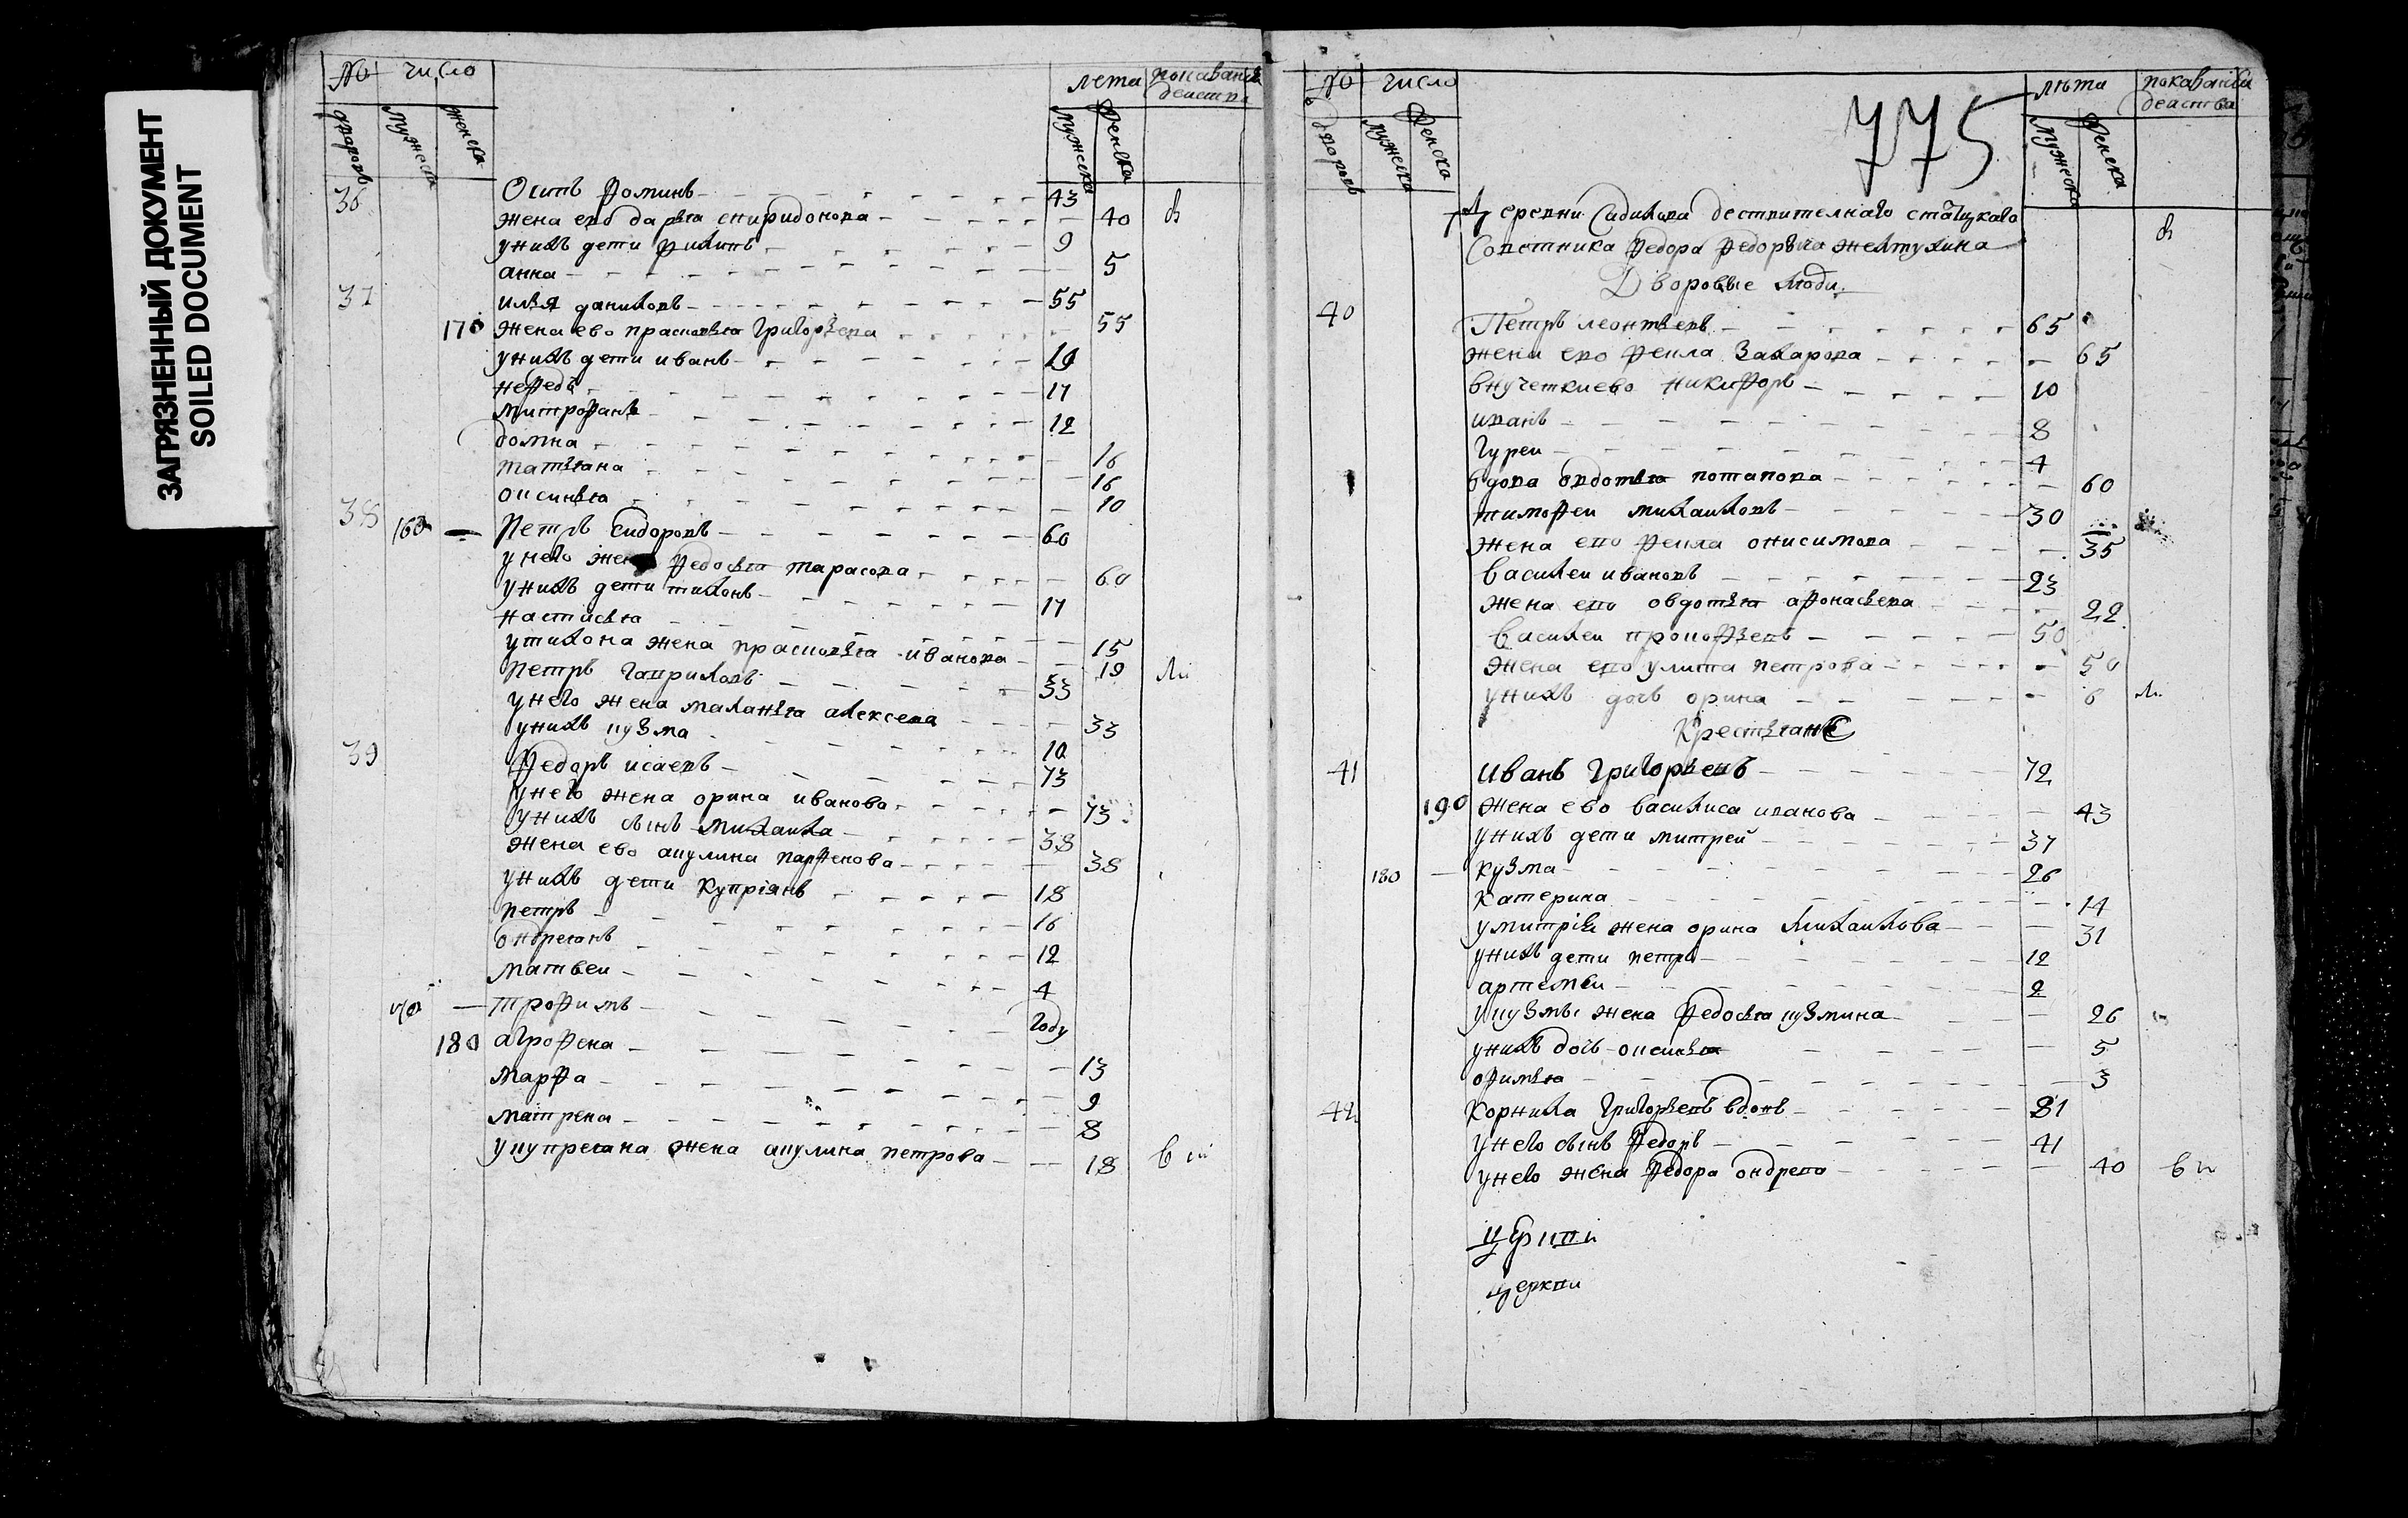 ЗАГРЯЗНЕННЫЙ ДОКУМЕНТ
SOILED DOCUMENT
№ число лета показание
деиства
дворовъ мужеска женска мужеска женска
36 Осипъ Фоминъ 43
жена ево дарья спиридонова 40
у нихъ дети филипъ 9
анна 5
37 илья даниловъ 55
170 жена ево прасковья григорьева 55
у нихъ дети иванъ 19
нефедъ 17
митрофанъ 12
домна 16
татьяна 16
оксинья 10
38 160 Петръ Сидоровъ 60
у него жена федосья тарасова 60
у нихъ дети тихонъ 17
настасья 15
у тихона жена прасковья иванова 19
петръ гавриловъ 33
у него жена маланья алексева 33
у нихъ кузма 10
39 Федоръ исаевъ 73
у него жена орина иванова 73
у нихъ сынъ михаила 38
жена ево акулина парфенова 38
у нихъ дети купріянъ 18
петръ 16
ондреянъ 12
матвеи 4
170 трофимъ году
180 агрофена 13
марфа 9
матрена 8
у купреяна жена акулина петрова 18
№ число лѣта показаніи
деиства
дворовъ мужеска женска мужеска женска
775
деревни дествителнаго статцкаго
Советника Федора Федорыча желтухина
Дворовые люди
40 Петръ леонтьевъ 65
жена ево фекла Захарова 65
внучетки ево никифоръ 10
иванъ 8
гуреи 4
вдова овдотья потапова 60
тимофеи михаиловъ 30
жена ево фекла онисимова 35
Василеи ивановъ 23
жена ево овдотья афонасьева 22
Василеи прокофьевъ 50
жена ево улита петрова 50
у нихъ дочь орина 6
Крестьяне
41 Иванъ Григорьевъ 72
190 жена ево василиса иванова 43
у нихъ дети митрей 37
180 кузма 26
катерина 14
у митрія жена орина михаилова 31
у нихъ дети петръ 12
артемеи 2
у кузмы жена федосья кузмина 26
у нихъ дочь оксинья 5
офимья 3
42 Корнила григорьевъ вдовъ 81
у него сынъ федоръ 41
у него жена федора ондрева 40
церкви
церкви